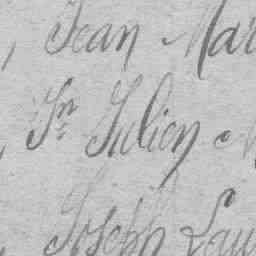 , Jean Mar
, Jn Julien M
, Joseph Lau